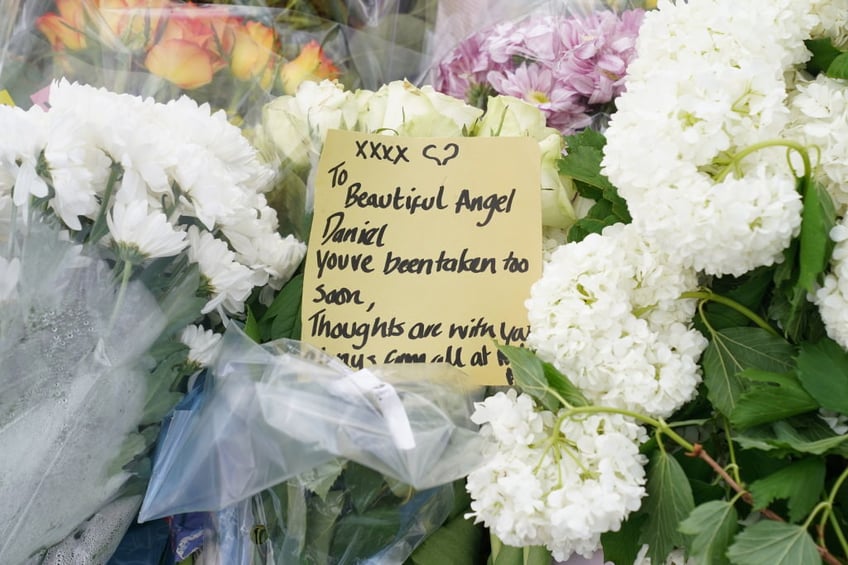 xxxx
To
Beautiful Angel
Daniel
you've been taken too
soon,
Thoughts are with you
all at